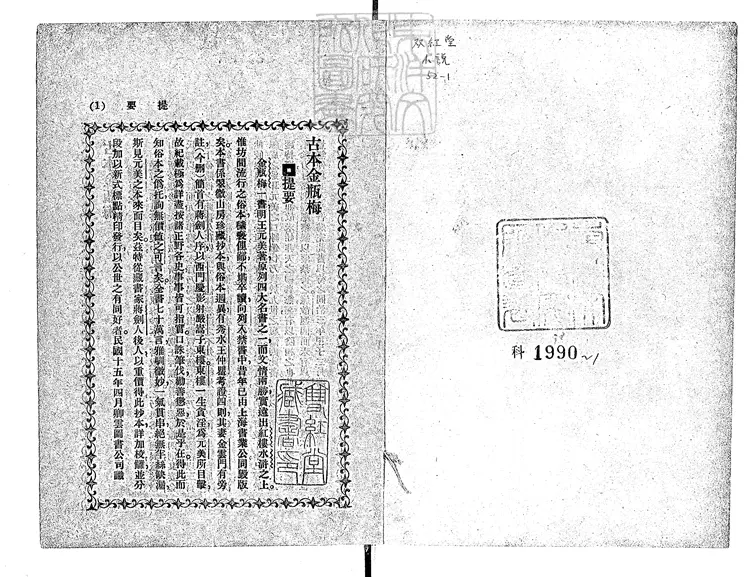 双紅堂
小説
52-1
科 1990~1
(1) 要 提
古本金瓶梅
提要
金瓶梅一書明王元美著原列四大名書之一而文情兩勝實遠出紅樓水滸之上
惟坊間流行之俗本穢褻俚鄙不堪卒讀向列入禁書中昔年已由上海書業公同毀版
矣本書係翠微山房珍藏抄本與俗本迥異有秀水王仲瞿考證四則其妻金雲門有旁
註(今刪)簡首有蔣劍人序以西門慶影射嚴嵩子東樓東樓一生貪淫為元美所目擊
故紀載極為詳盡按諸正野各史事事皆可指實口誅筆伐勸善懲惡於是乎在得此而
知俗本之偽托詢無價值之可言矣全書七十萬言雅馴微妙一氣貫串絕無半絲缺漏
斯見元美之本來面目矣茲特從藏書家蔣劍人後人以重價得此抄本詳加校讎並分
段加以新式標點精印發行以公世之有同好者民國十五年四月卿雲圖書公司識
雙紅堂
藏書印